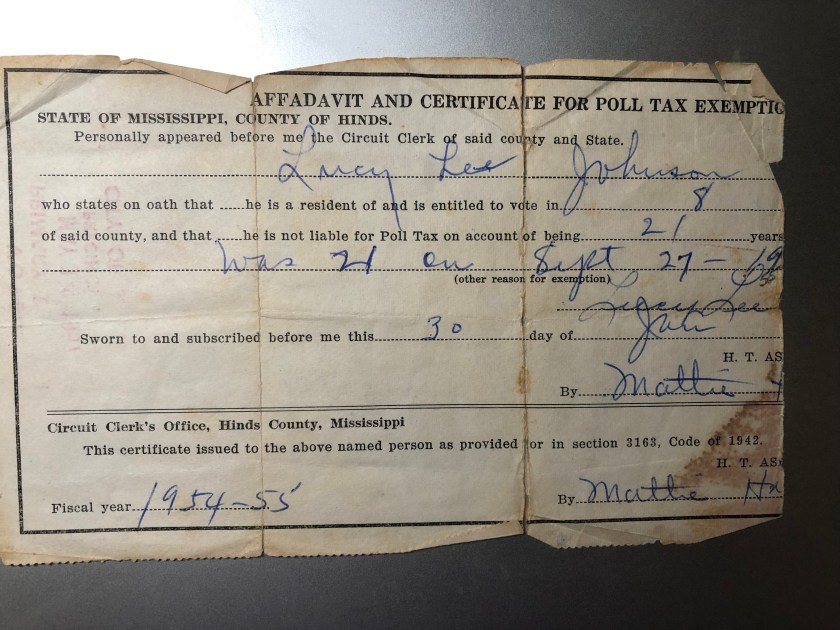 AFFADAVIT AND CERTIFICATE FOR POLL TAX EXEMPTIO
STATE OF MISSISSIPPI, COUNTY OF HINDS.
Personally appeared before me the Circuit Clerk of said county and State.
Lucy Lee Johnson
who states on oath that ......he is a resident of and is entitled to vote in 8
of said county, and that ......he is not liable for Poll Tax on account of being 21 years
Was 21 on Sept 27 - 19
(other reason for exemption)
Lucy Lee
Sworn to and subscribed before me this 30 day of
H. T. AS
By Mattie
Circuit Clerk's Office, Hinds County, Mississippi
This certificate issued to the above named person as provided for in section 3163, Code of 1942.
H. T. AS
Fiscal year 1954-55 By Mattie Ha